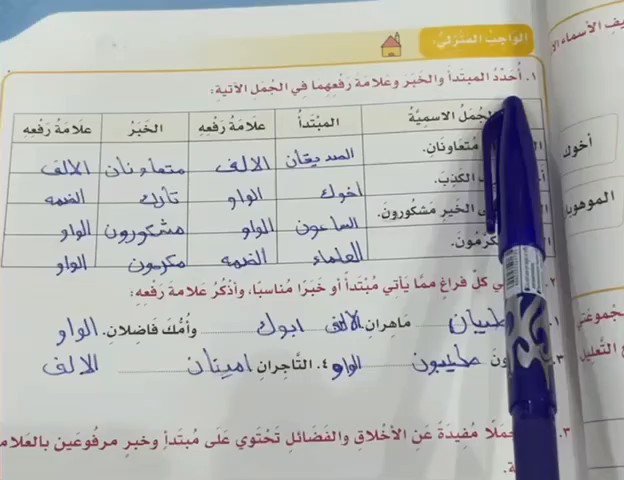 الواجب المنزلي:
١. أُحَدِّدُ المبتدأ والخبر وعلامة رفعهما في الجمل الآتية:
الجمل الاسمية المبتدأ علامة رفعه الخبر علامة رفعه
متعاونان. الصديقان الالف متعاونان الالف
الكذب. اخوك الواو تارك الضمه
الخير مشكورون. الساعون الواو مشكورون الواو
مكرمون. العلماء الضمه مكرمون الواو
٢. في كل فراغ مما يأتي مبتدأ أو خبرا مناسبا، وأذكر علامة رفعه:
١. ماهران. الالف ابوك وأمك فاضلان. الواو
٣. طيبون الواو ٤. التاجران امينان الالف
٣. جملا مفيدة عن الأخلاق والفضائل تحتوي على مبتدأ وخبر مرفوعين بالعلامات
أخوك
الموهوبا